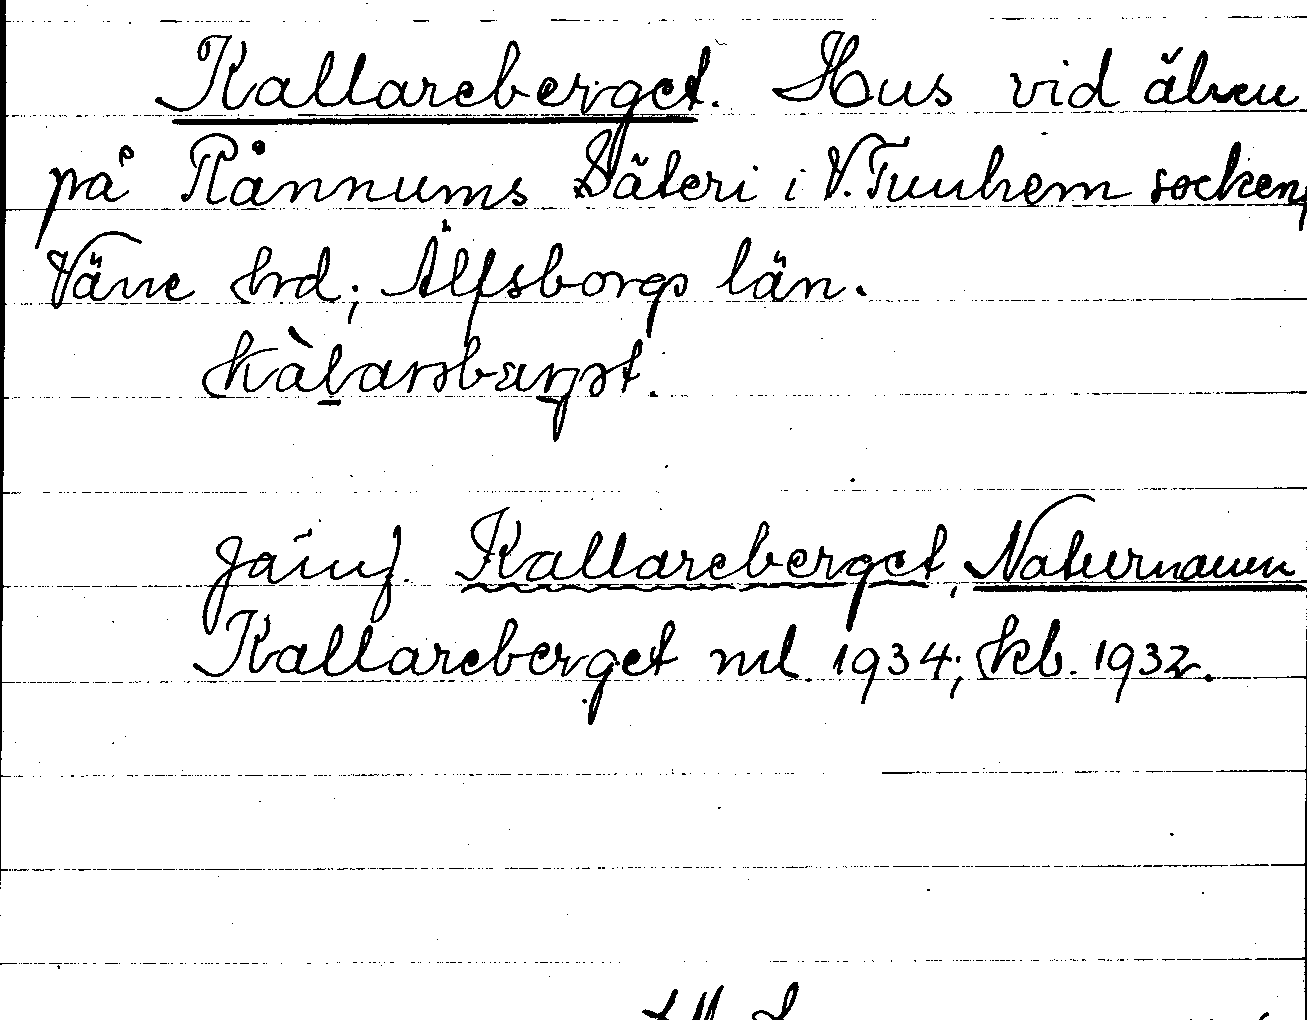 Kallareberget. Hus vid älven
på Rånnums Säteri i V. Tunhem socken,
Väne hrd; Älfsborgs län.
Jämf. Kallareberget, Naturnamn
Kallareberget ml. 1934; kb. 1932.